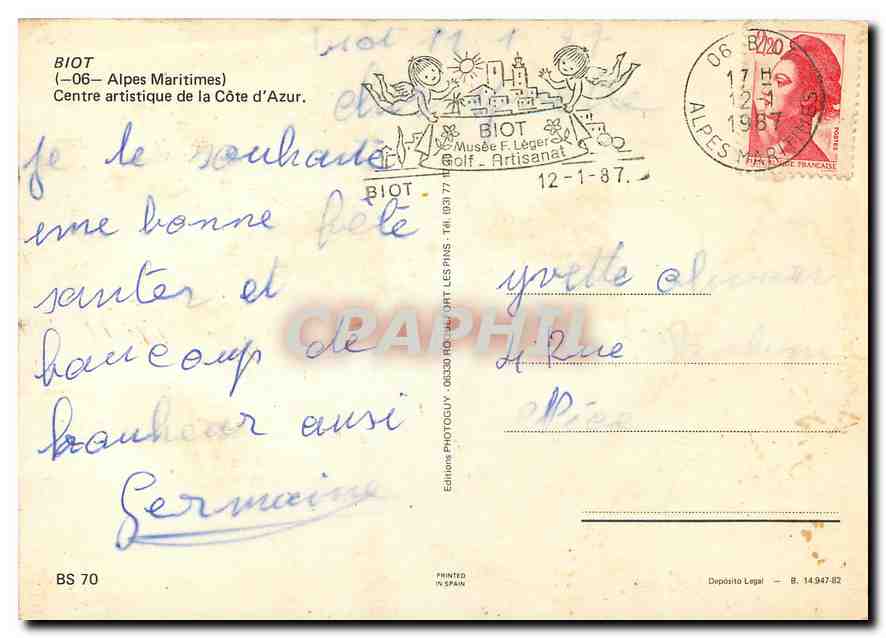 BIOT
(—06— Alpes Maritimes)
Centre artistique de la Côte d'Azur.
Biot 11 1 87
je te souhaite
une bonne fête
santer et
baucoup de
bonheur ausi
Germaine
BIOT
Musée F. Léger
Golf - Artisanat
BIOT
12-1-87.
06 B
17 H
12-1
1987
ALPES MARITIMES
2,20
POSTES
FRANÇAISE
yvette
4 Rue
Nice
CPAPHIL
Editions PHOTOGUY - 06330 ROQUEFORT LES PINS - Tél. (93) 77
BS 70
PRINTED
IN SPAIN
Depósito Legal — B. 14.947-82